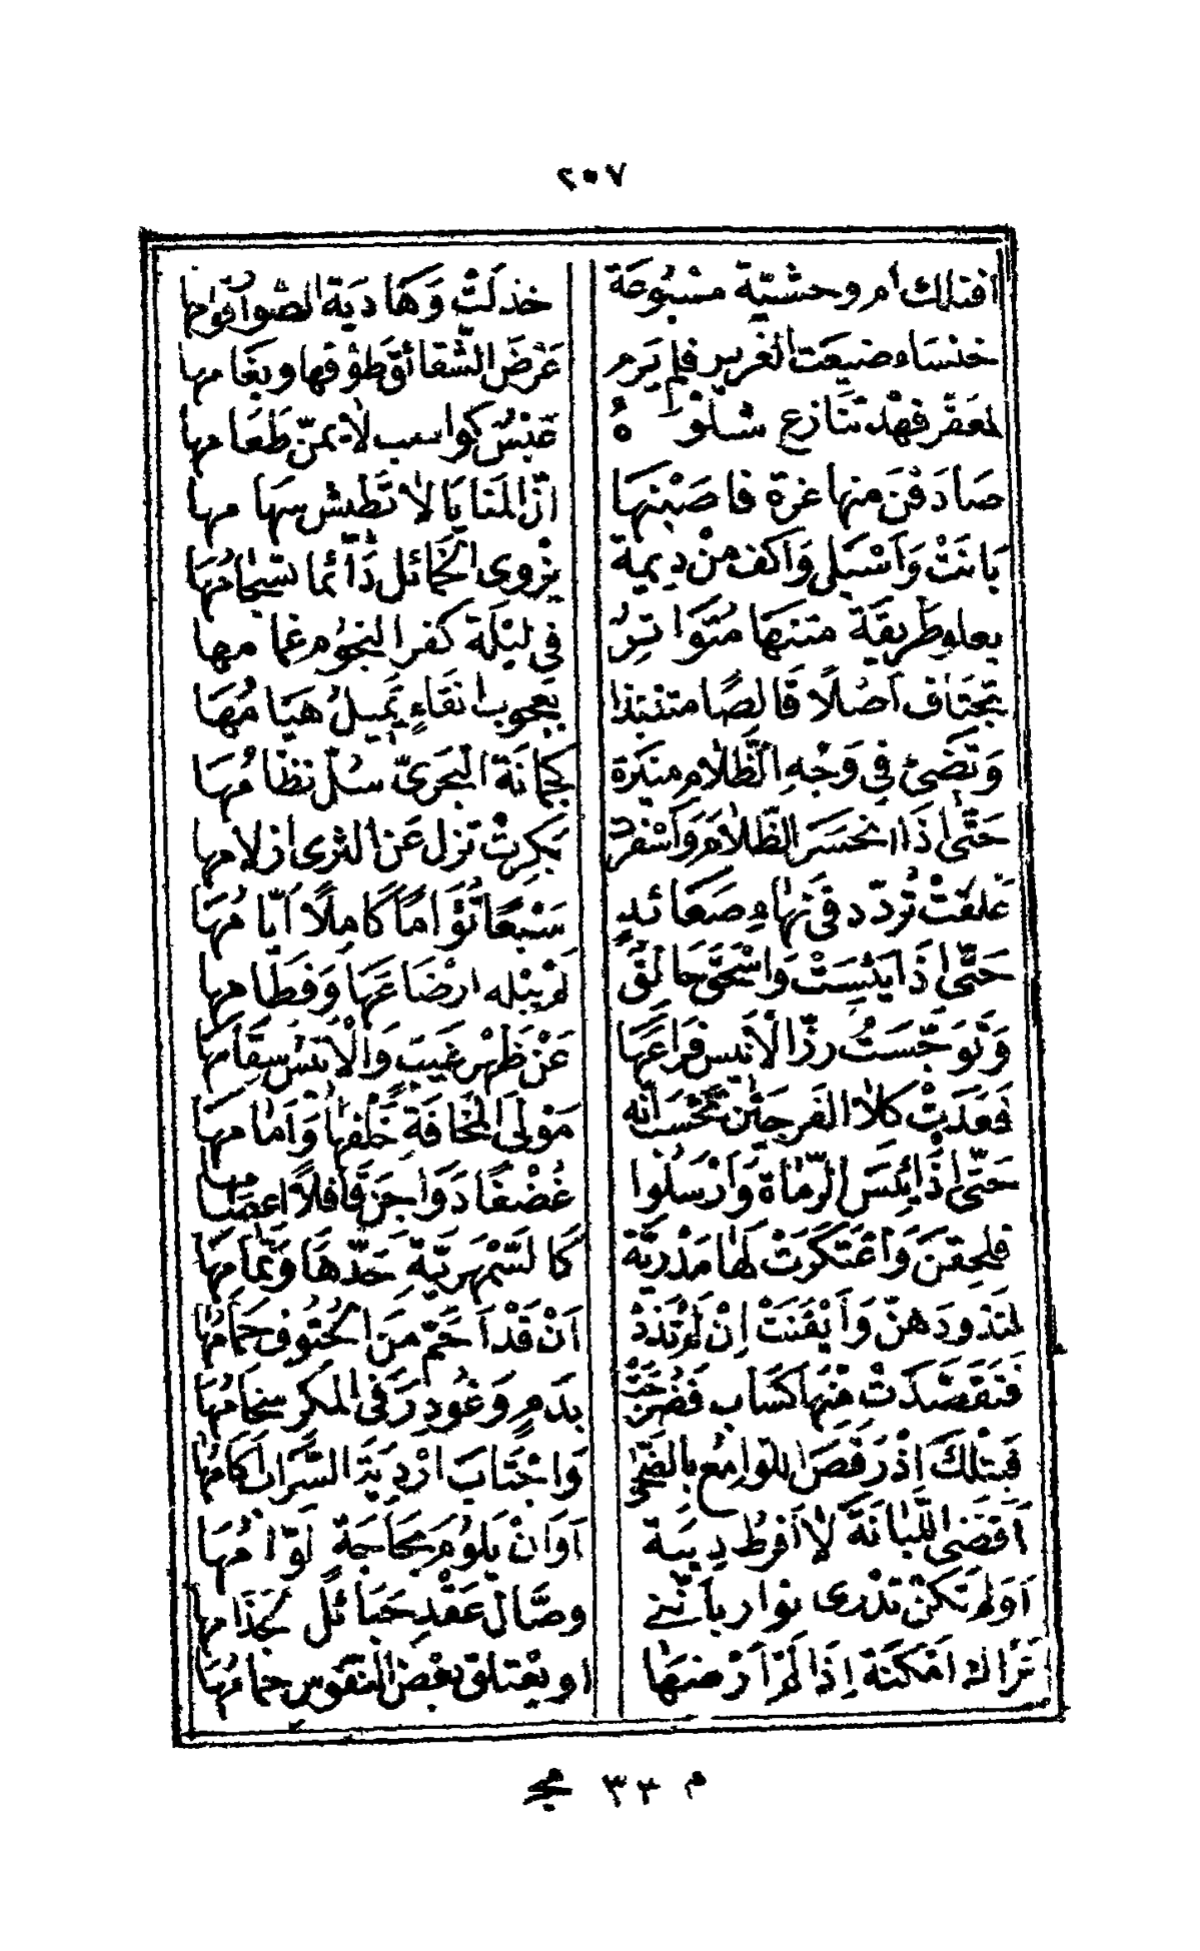 ٢٥٧
أفتلك أم وحشيّة مسْبُوعَة خذلَتْ وَهَا دية الصّوار قوامها
خنساء ضيعت الغرير فلم يَرم عَرْضَ الشّقائق طوْفها وبغامها
لمعَفّر قهْد تنَازع شلْوَهُ غبْسٌ كواسب لا يمنّ طَعَامها
صَادفْنَ منها غرة فاصَبْنهَا انّ المنايَا لا تطيش سهَامها
بَانَتْ وَاَسْبَلَ وَاكف منْ دِيمة يرْوى الخمائل دَائما تسْجامُهَا
يعلو طَريقَة متنهَا مُتوَاترٌ في ليْلَة كفر النجُوم غمامها
تجْتَاف اصْلاً قَالصًا متنبّذا بعجوب انقَاءٍ يَميلُ هيَامُهَا
وَتضىُٔ فِي وَجْهِ الظّلَام منيرة كجُمانَة البَحرىّ سُلّ نظَامُهَا
حَتَّى اذَا انحسَرَ الظّلَام وَاَسْفَرتْ بَكرتْ تزل عَن الثرى ازلامها
علهَتْ تُردّد في نهَاءِ صَعَائد سَبْعًا تُؤَامًا كَامِلًا اَيّامُهَا
حَتَّى اذَا يئسَتْ وَاسْحَق حَالقٌ لم يبله ارْضَاعَهَا وَفطَامها
وَتوَجّسَتْ رزّ الأَنيس فرَاعَهَا عَنْ ظَهْر غيب وَالْاَنيسُ سقَامهَا
فعَدَتْ كلا الفَرجَيْن تحْسَبُ اَنّه مَوْلى المخَافَةِ خَلْفهَا وَاَمَامهَا
حَتَّى اذَا يئسَ الرّمَاة وَاَرْسَلوا غُضْفًا دَوَاجنَ قَافلاً اعصَامها
فلحقنَ وَاعْتكَرَتْ لهَا مَدْريّة كَالسّمْهَريّةِ حَدّهَا وَتمامهَا
لتَذودَهنّ وَاَيْقَنَتْ اِنْ لَمْ تذدْ اَنْ قَدْ اَحَمّ منَ الحُتُوفِ حمَامُهَا
فتقَصّدَتْ منْهَا كسَاب فَضُرّجَتْ بدَمٍ وَغُودِرَ في المكَرّ سخَامُهَا
فَبتلْكَ اِذْ رَقصَ اللوامِعُ بالضّحَى وَاجْتَابَ ارْدِيَة السّرَاب اكَامُهَا
اَقضى اللّبَانَةَ لَا اُفَرّطُ ريبَة اَوَانْ يَلومَ بحَاجَةٍ لوّامُهَا
اَوَلم تَكنْ تدْرى نوار باَنّنى وصّال عَقْدِ حَبَائل جَذّامها
ترّاك امْكنَة اِذَا لَمْ اَرْضهَا او يعْتلق بعْضَ النّفوس حمَامُهَا
م ٣٣ مج